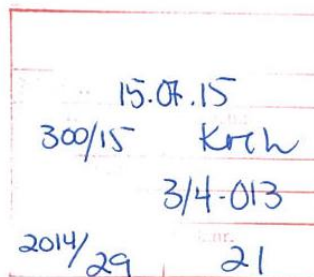 15.07.15
300/15 Krch
3/4-013
nr.
2014/29 21